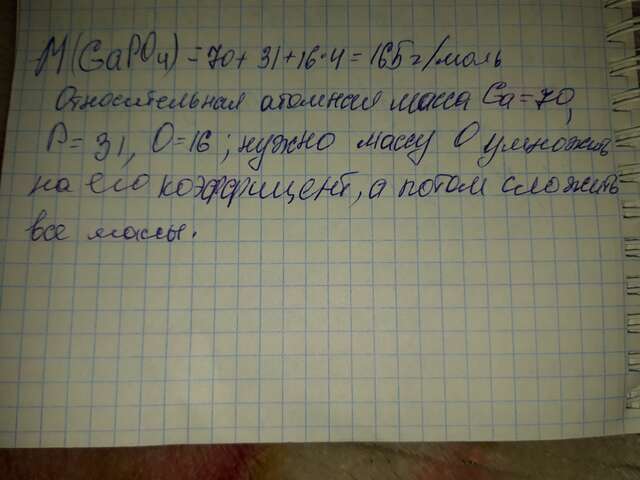 M(GaPO₄) = 70+31+16·4 = 165г/моль
Относительная атомная масса Ga=70,
P=31, O=16; нужно массу O умножить
на его коэффицент, а потом сложить
все массы.